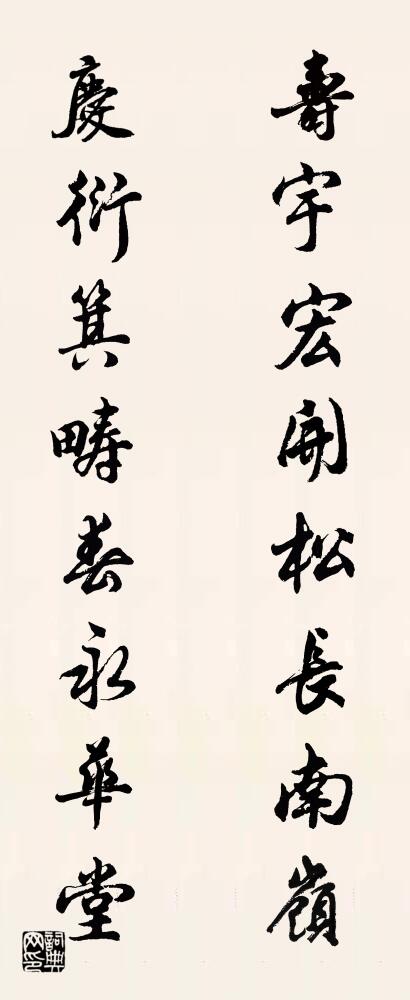 壽宇宏開松長南嶺
慶衍箕疇春永華堂
詞典网印